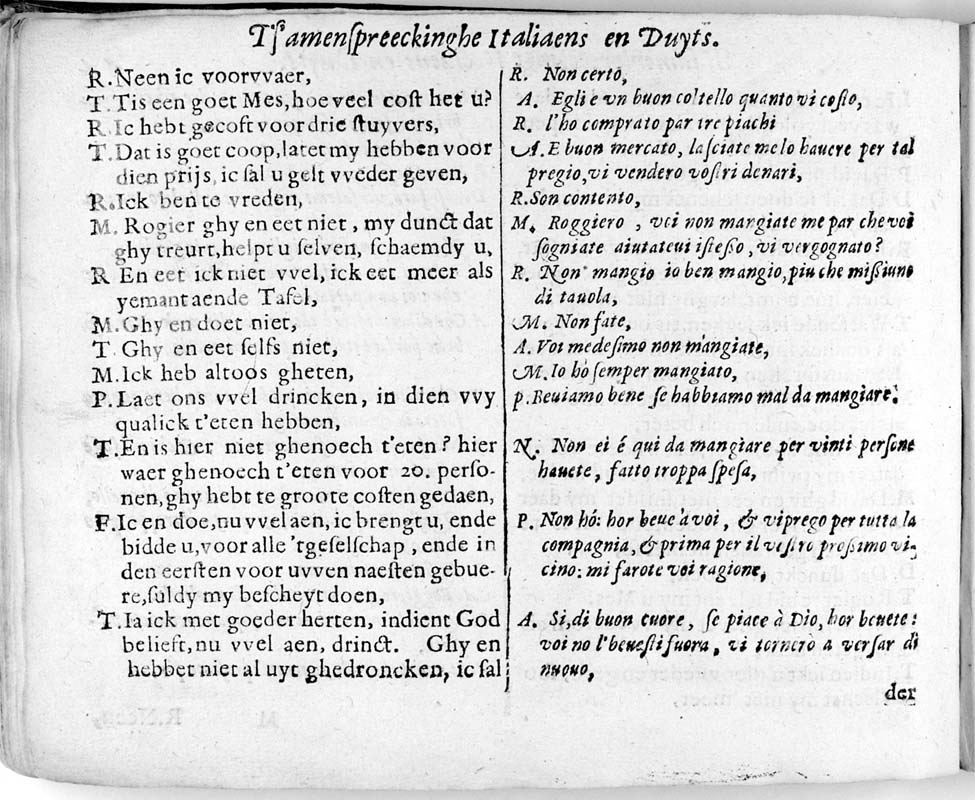 Tſamenſpreeckinghe Italiaens en Duyts.
R. Neen ic voorvvaer,
T. Tis een goet Mes, hoe veel coſt het u?
R. Ic hebt gecoſt voor drie ſtuyvers,
T. Dat is goet coop, latet my hebben voor
dien prijs, ic ſal u gelt vveder geven,
R. Ick ben te vreden,
M. Rogier ghy en eet niet, my dunct dat
ghy treurt, helpt u ſelven, ſchaemdy u,
R En eet ick niet vvel, ick eet meer als
yemant aende Tafel,
M. Ghy en doet niet,
T. Ghy en eet ſelfs niet,
M. Ick heb altoos gheten,
P. Laet ons vvel drincken, in dien vvy
qualick t'eten hebben,
T. En is hier niet ghenoech t'eten? hier
waer ghenoech t'eten voor 20. perſo-
nen, ghy hebt te groote coſten gedaen,
F. Ic en doe, nu vvel aen, ic brengt u, ende
bidde u, voor alle 'tgeſelſchap, ende in
den eerſten voor uvven naeſten gebue-
re, ſuldy my beſcheyt doen,
T. Ia ick met goeder herten, indient God
belieft, nu vvel aen, drinct. Ghy en
hebbet niet al uyt ghedroncken, ic ſal
R. Non certo,
A. Egli e vn buon coltello quanto vi coſto,
R. l'ho comprato par tre piachi
A. E buon mercato, laſciate melo hauere per tal
pregio, vi vendero voſtri denari,
R. Son contento,
M. Roggiero, voi non mangiate me par che voi
ſogniate aiutateui iſteßo, vi vergognato?
R. Non mangio io ben mangio, piu che mißiuno
di tauola,
M. Non fate,
A. Voi medeſimo non mangiate,
M. Io hò ſemper mangiato,
P. Beuiamo bene ſe habbiamo mal da mangiare.
N. Non ei é qui da mangiare per vinti perſone
hauete, fatto troppa ſpeſa,
P. Non hó: hor beue à voi, & vi prego per tutta la
compagnia, & prima per il veſtro proßimo vi-
cino: mi farote voi ragione,
A. Si, di buon cuore, ſe piace à Dio, hor beuete:
voi no l'beueſti fuora, vi tornerò a verſar di
nuouo,
der